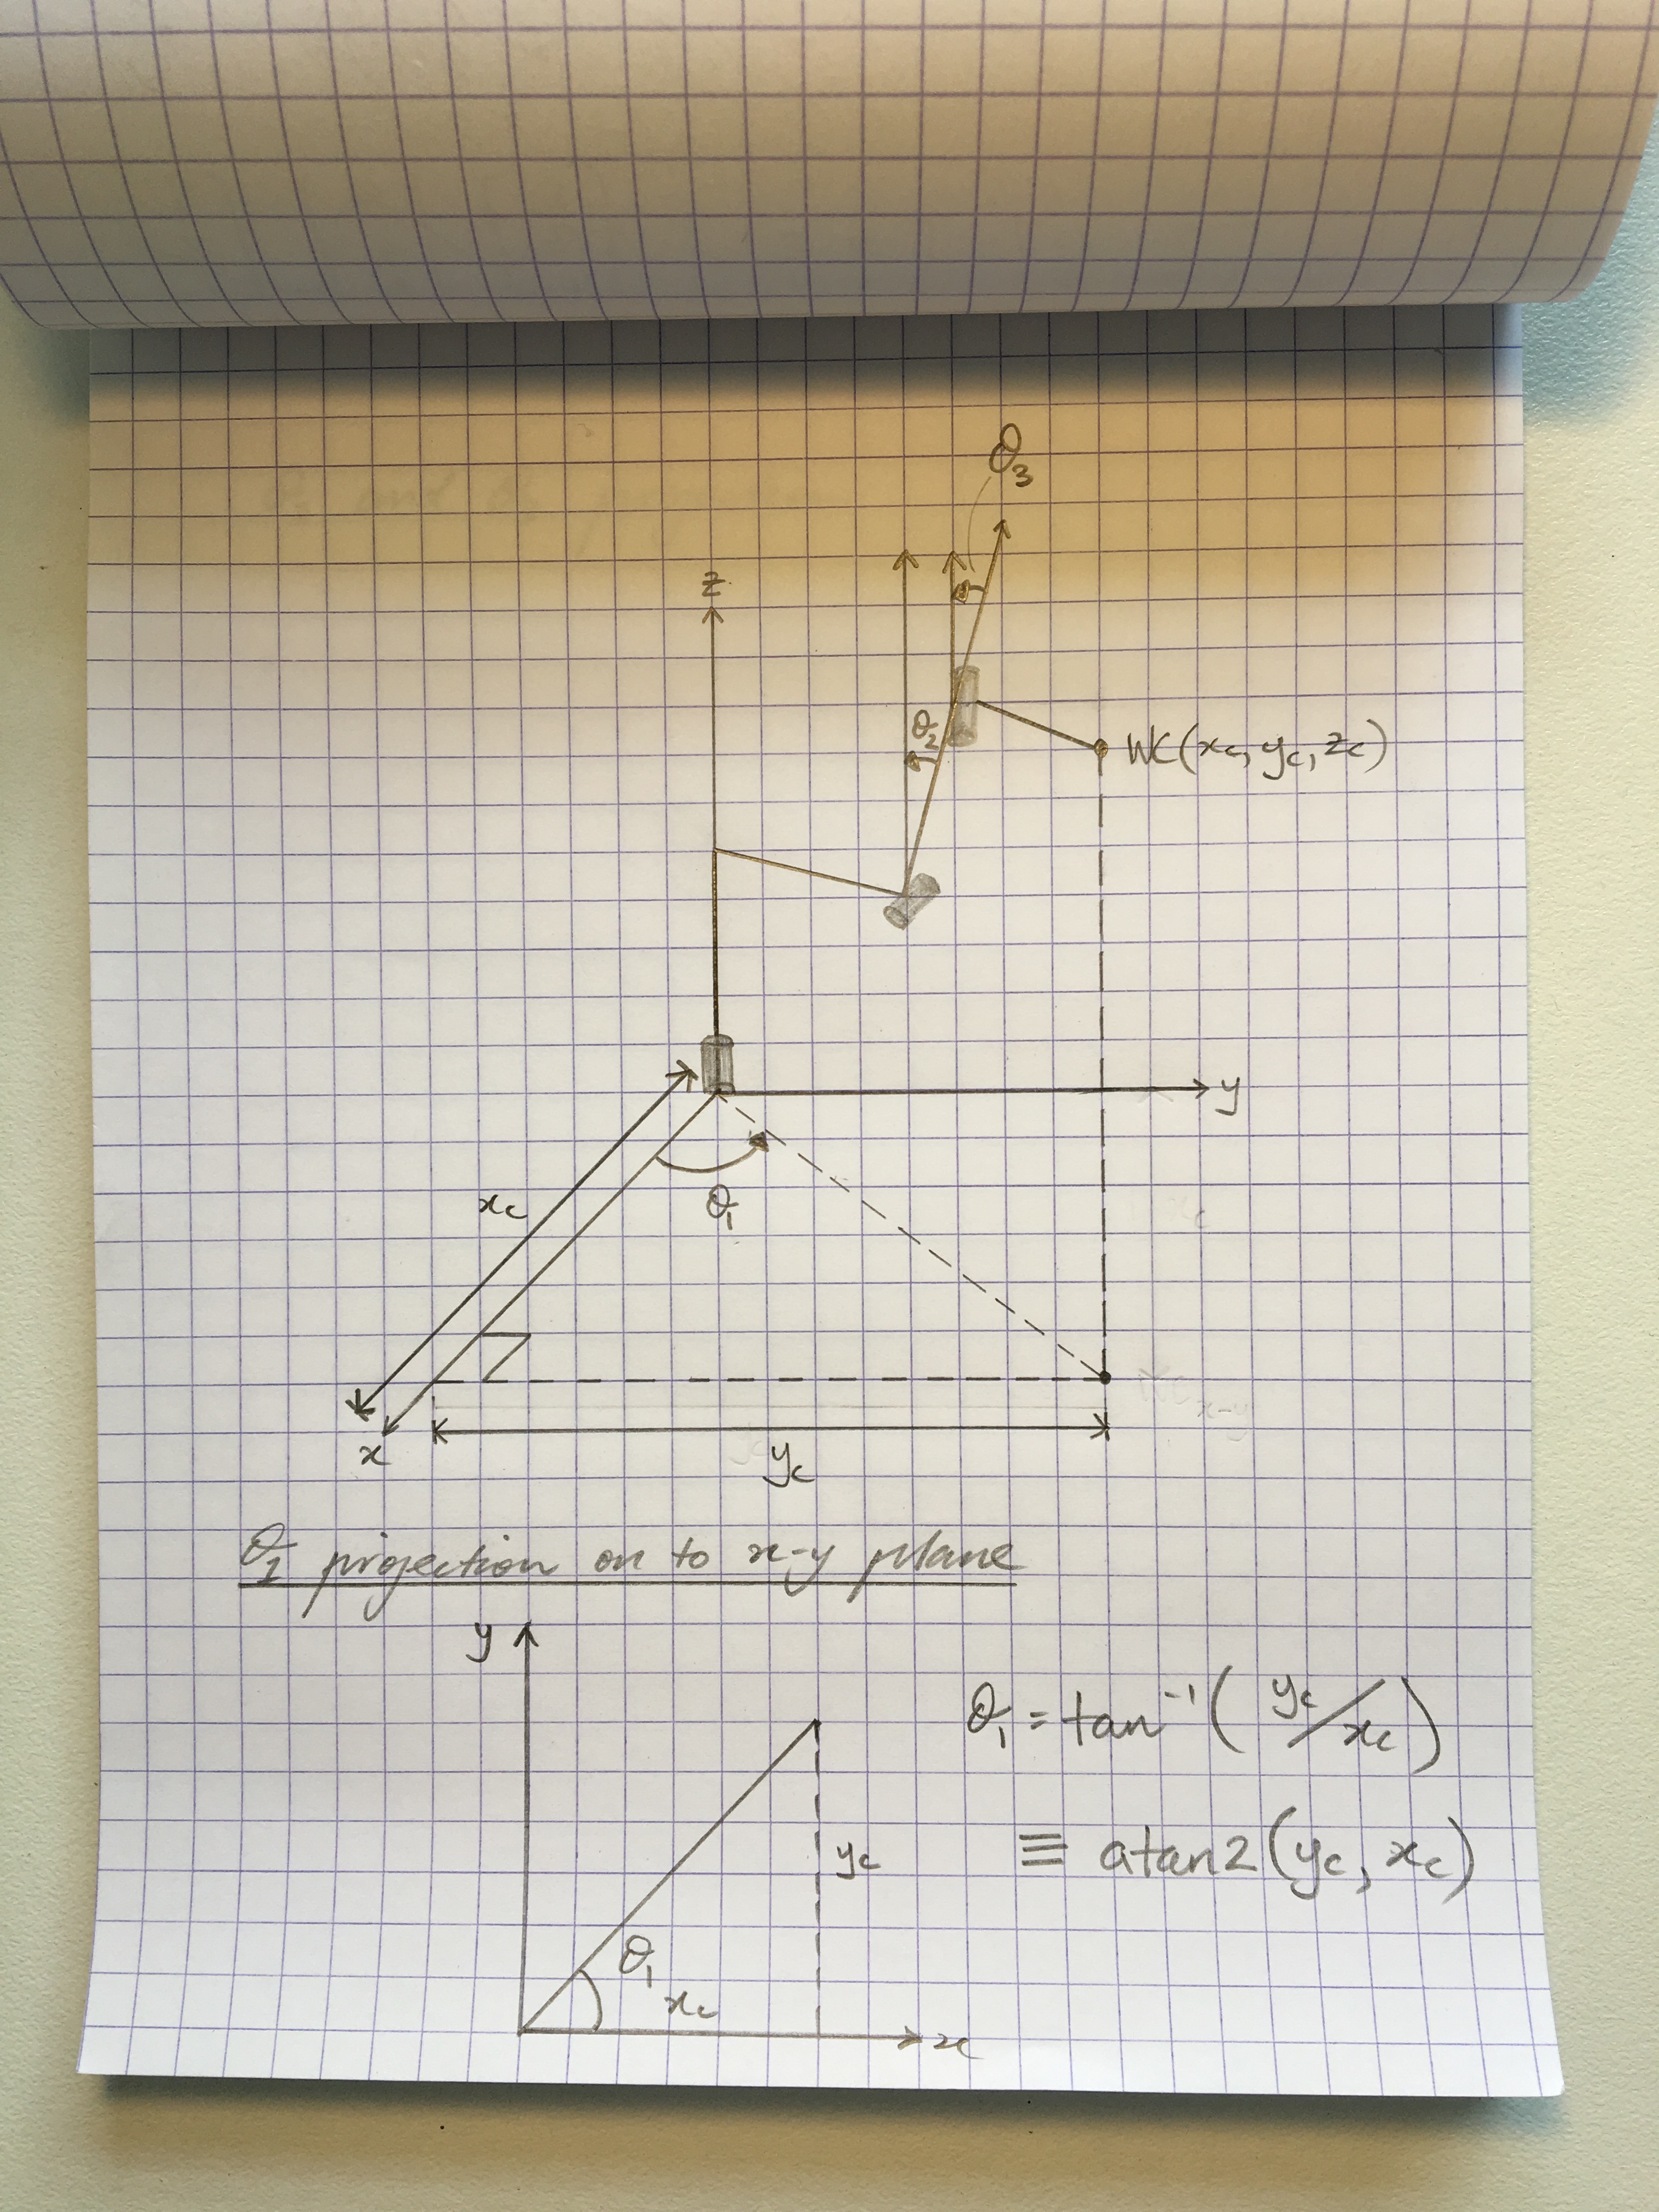 θ₃
z
θ₂
WC(xc, yc, zc)
y
xc
θ₁
x
yc
θ₁ projection on to x-y plane
y
θ₁ = tan⁻¹(yc/xc)
≡ atan2(yc, xc)
yc
θ₁
xc
x